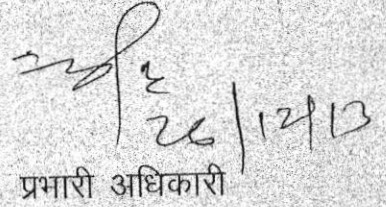 26/12/13
प्रभारी अधिकारी